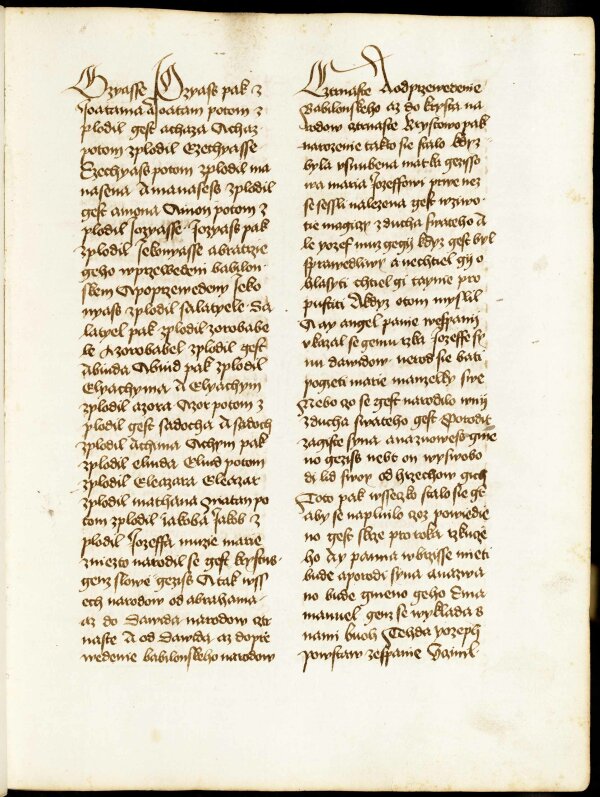 Ozyasse Ozyass pak z
Joatama a Joatam potom z
plodil gest achaza Achaz
potom zplodil Ezechyasse
Ezechyass potom zplodil ma
nasena A manasess zplodil
gest amona Amon potom z
plodil Jozyasse Jozyass pak
zplodil Jekonyasse abratrzie
geho wprzewedeni babilon
skem Apoprzewedeny Jeko
nyass zplodil salatyele Sa
latyel pak zplodil zorobabe
le A zorobabel zplodil gest
Abiuda Abiud pak zplodil
Elyachyma A Elyachym
zplodil azora Azor potom z
plodil gest sadocha A sadoch
zplodil Achima Achym pak
zplodil eliuda Eliud potom
zplodil Eleazara Eleazar
zplodil mathana Matan po
tom zplodil jakoba Jakob z
plodil Jozeffa muzie marie
zniezto narodil se gest krystus
genz slowe geziss A tak wss
ech narodow od abrahama
az do Dawida narodow cztr
naste A od Dawida az doprze
wedenie babilonskeho narodow
Cztrnaste A odprzewedenie
babilonskeho az do krysta na
rodow cztrnaste Krystowo pak
narozenie tako sie stalo kdyz
byla usnubena matka gezisso
wa maria Jozeffowi prwe nez
se sessli nalezena gest wziwo
tie magiczy zducha swateho A
le yozef muz gegij kdyz gest byl
sprawedliwy a nechtiel gij o
hlasyti chtiel gi taynie pro
pustiti A kdyz otom myslil
A ay angel panie wesspanij
vkazal se gemu rzka Jozeffe sy
nu dawidow nerod sie bati
pogieti marie manzelky swe
Nebo czo se gest narodilo wnij
zducha swateho gest Porodit
zagiste syna anazuowess gme
no geziss nebt on wyswobo
di lid swoy od hrzechow gich
Toto pak wsseczko stalo sie ge
aby se naplnilo czoz powiedie
no gest skrze proroka rzkucze
ho Ay panna wbrzisse mieti
bude aporodi syna anazwa
no bude gmeno geho Ema
manuel genz se wyklada s
nami buoh Tehda yozeph
powstaw zesspanie Vczinil